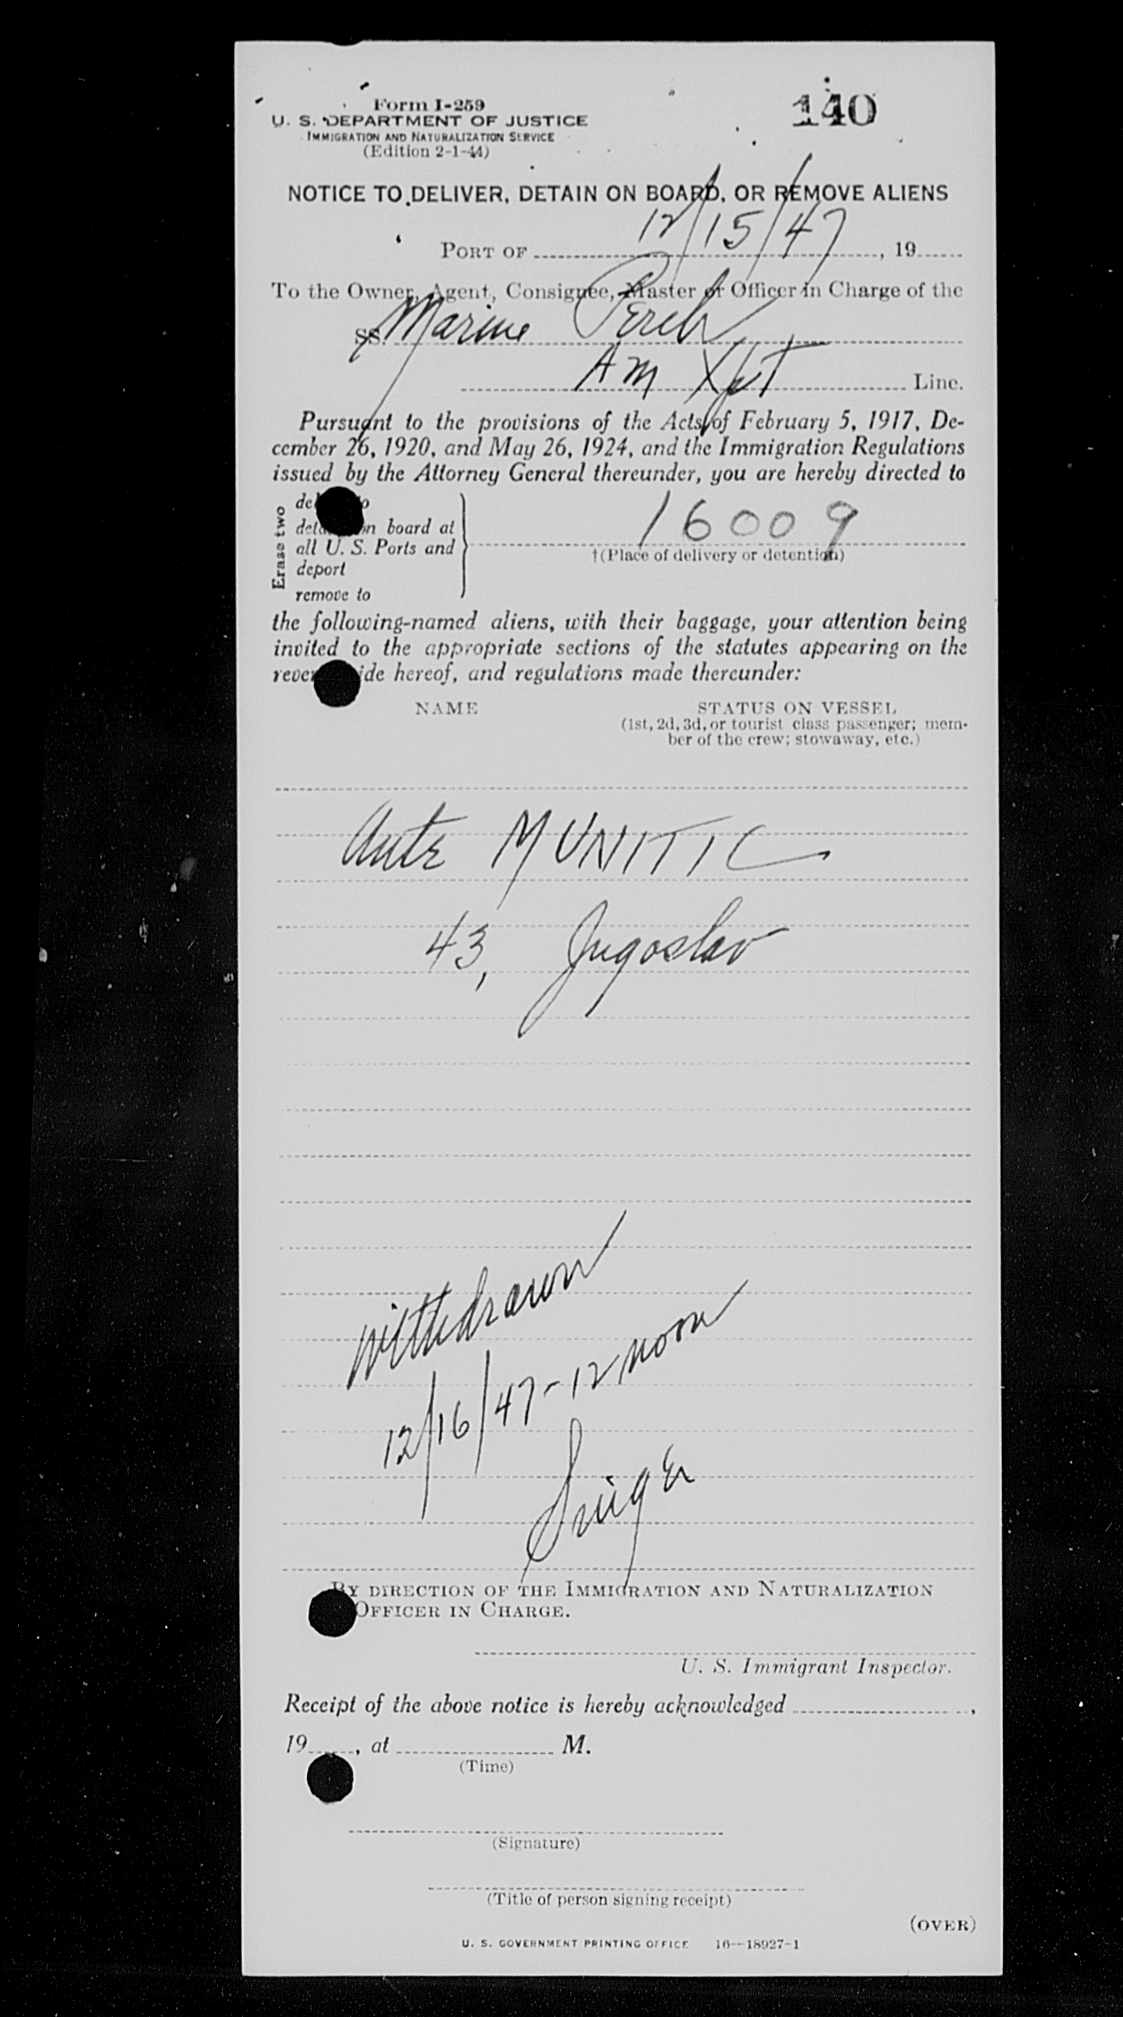 Form I-259
140
U. S. DEPARTMENT OF JUSTICE
IMMIGRATION AND NATURALIZATION SERVICE
(Edition 2-1-44)
NOTICE TO DELIVER, DETAIN ON BOARD, OR REMOVE ALIENS
12/15/47
PORT OF , 19
To the Owner, Agent, Consignee, Master or Officer in Charge of the
SS. Marine Perch
Am Xpt Line.
Pursuant to the provisions of the Acts of February 5, 1917, De-
cember 26, 1920, and May 26, 1924, and the Immigration Regulations
issued by the Attorney General thereunder, you are hereby directed to
Erase two
de o
deta on board at
all U. S. Ports and
deport
remove to
16009
†(Place of delivery or detention)
the following-named aliens, with their baggage, your attention being
invited to the appropriate sections of the statutes appearing on the
rever ide hereof, and regulations made thereunder:
NAME STATUS ON VESSEL
(1st, 2d, 3d, or tourist class passenger; mem-
ber of the crew; stowaway, etc.)
Ante MUNITIC
43, Jugoslav
withdrawn
12/16/47-12 noon
Singer
BY DIRECTION OF THE IMMIGRATION AND NATURALIZATION
OFFICER IN CHARGE.
U. S. Immigrant Inspector.
Receipt of the above notice is hereby acknowledged ,
19 , at M.
(Time)
(Signature)
(Title of person signing receipt)
(OVER)
U. S. GOVERNMENT PRINTING OFFICE 16—18927-1